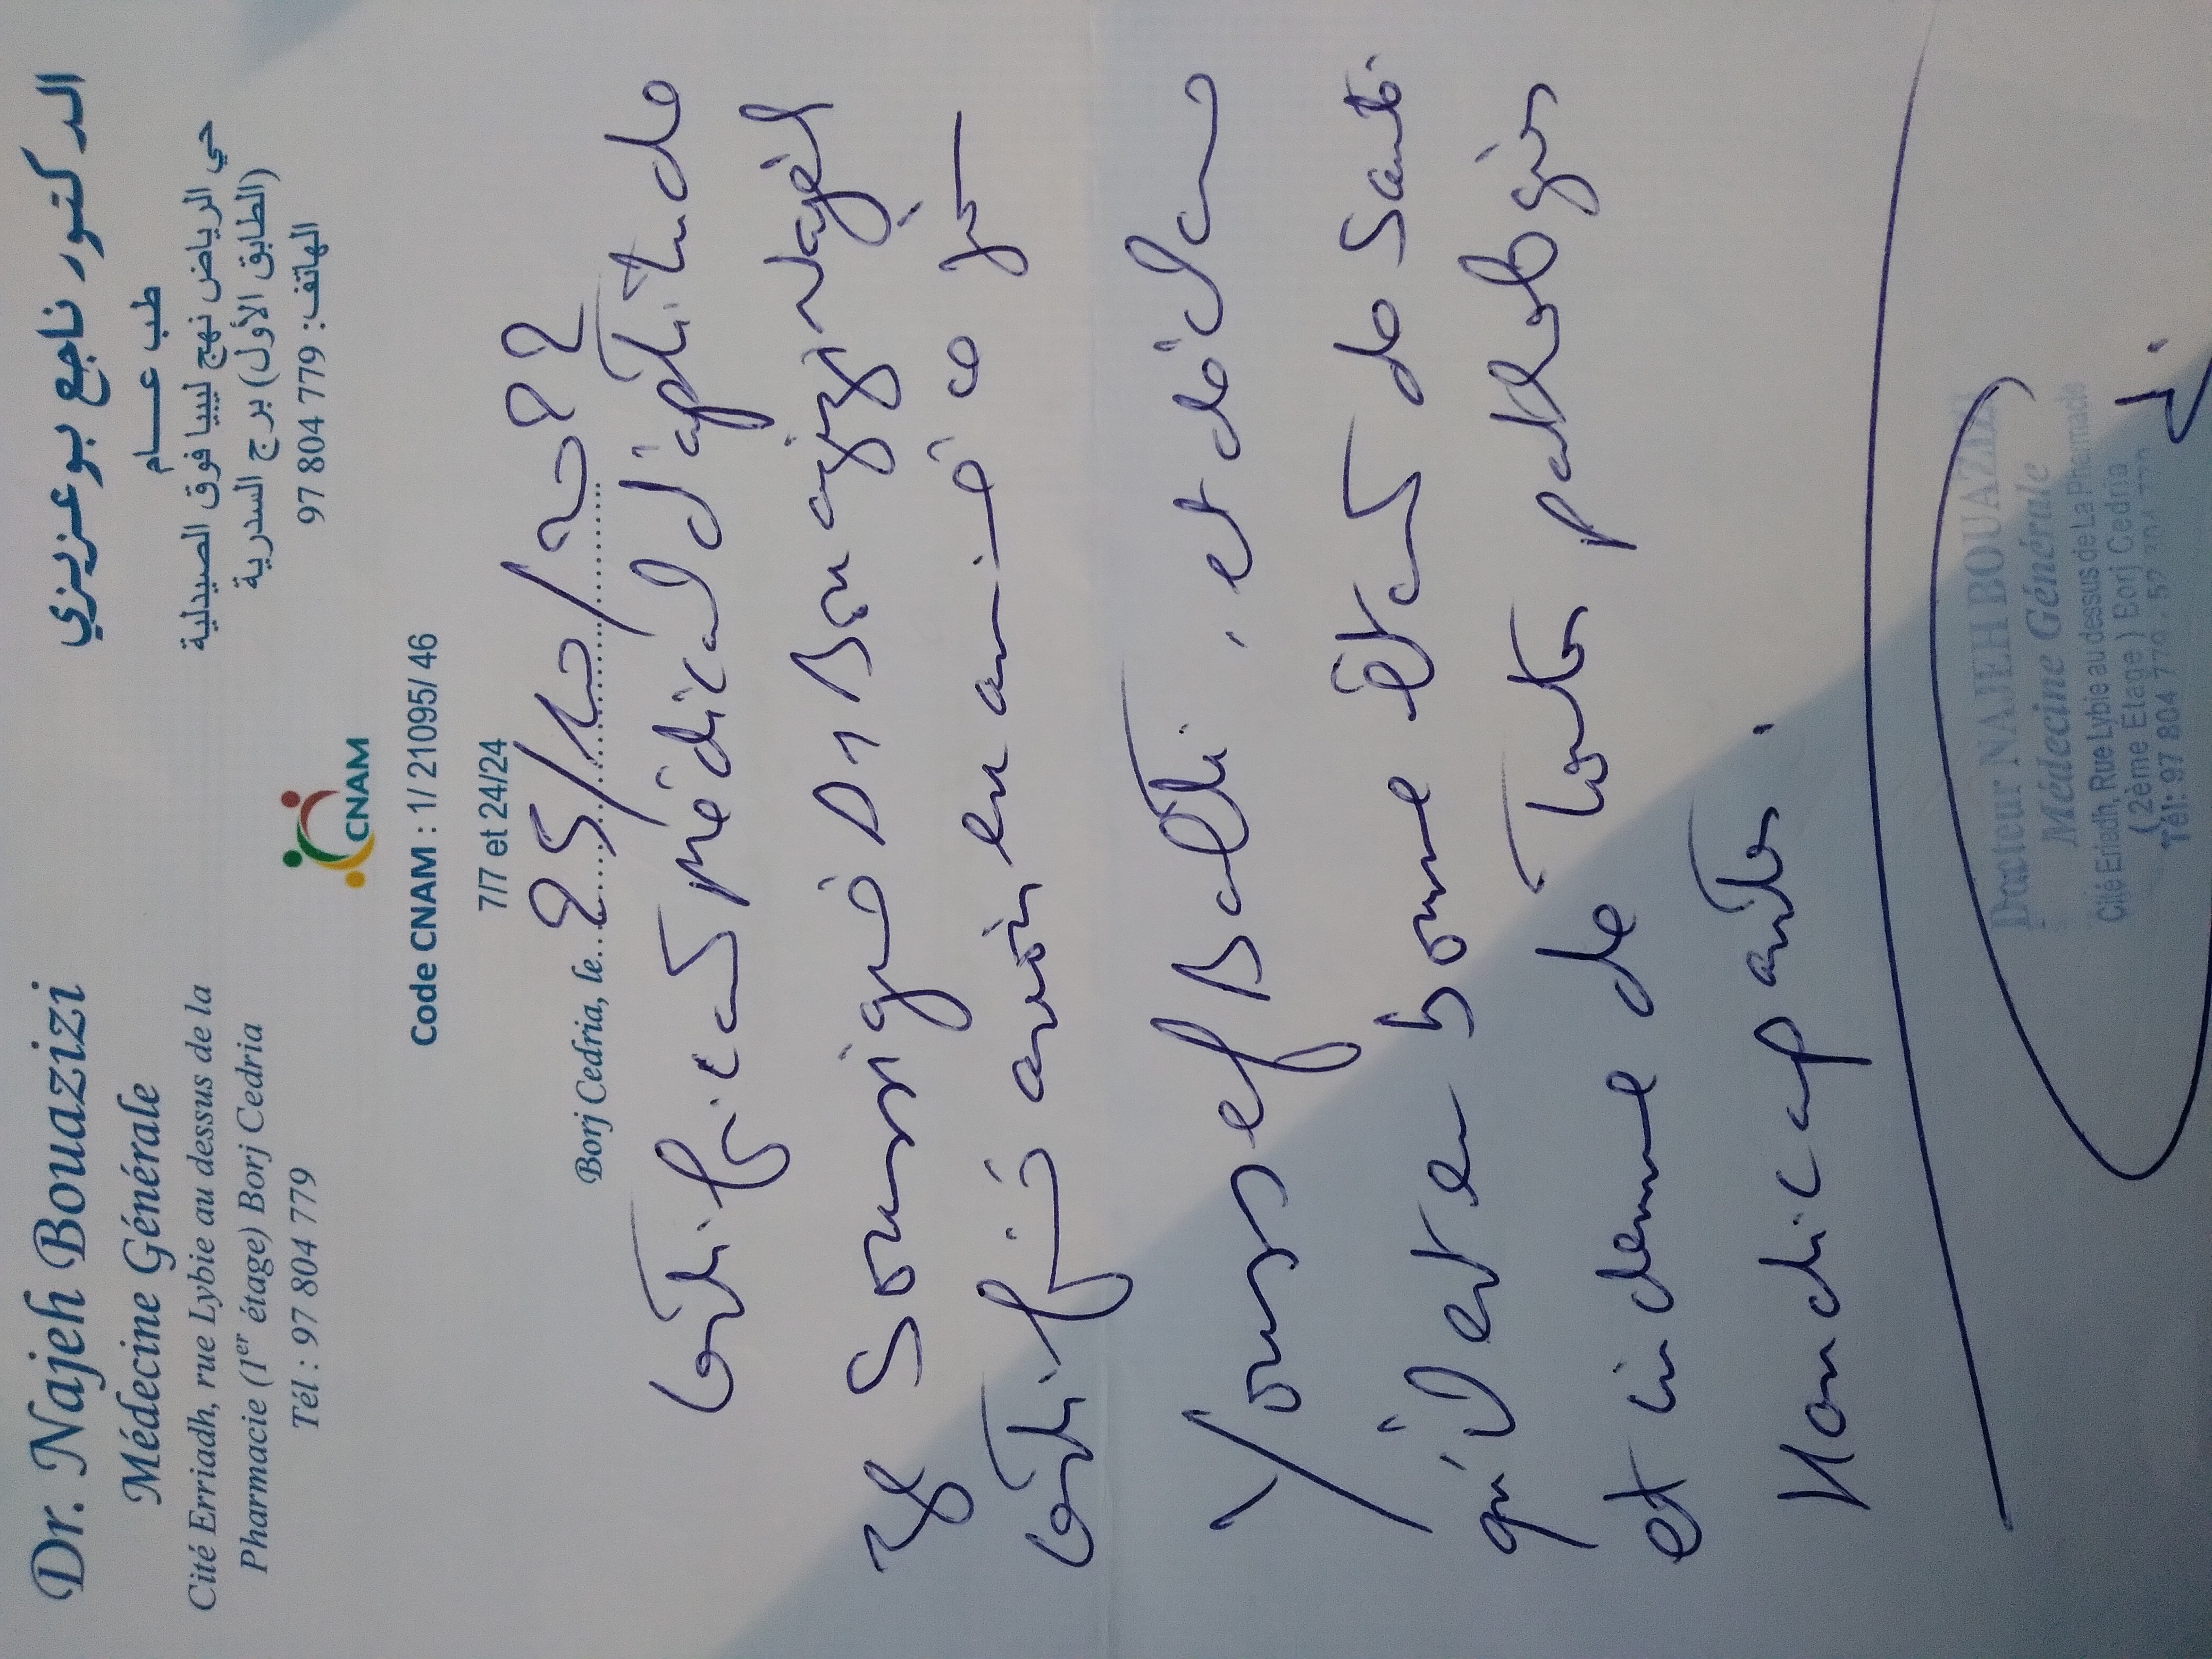 Dr. Najeh Bouazizi
Médecine Générale
Cité Erriadh, rue Lybie au dessus de la
Pharmacie (1er étage) Borj Cedria
Tél : 97 804 779
الدكتور ناجع بوعزيزي
طب عـــام
حي الرياض نهج ليبيا فوق الصيدلية
(الطابق الأول) برج السدرية
الهاتف: 779 804 97
CNAM
Code CNAM : 1/ 21095/ 46
7/7 et 24/24
Borj Cedria, le...25/10/2022
Certificat médical d'aptitude
Je soussigné Dr Bouazizi Najeh
certifie avoir examiné ce jour
Youssef Balti, et déclare
qu'il est en bonne état de santé
et indemne de toutes pathologies
Handicapantes.
Docteur NAJEH BOUAZIZI
Médecine Générale
Cité Eriadh, Rue Lybie au dessus de La Pharmacie
(2ème Etage) Borj Cedria
Tél: 97 804 779